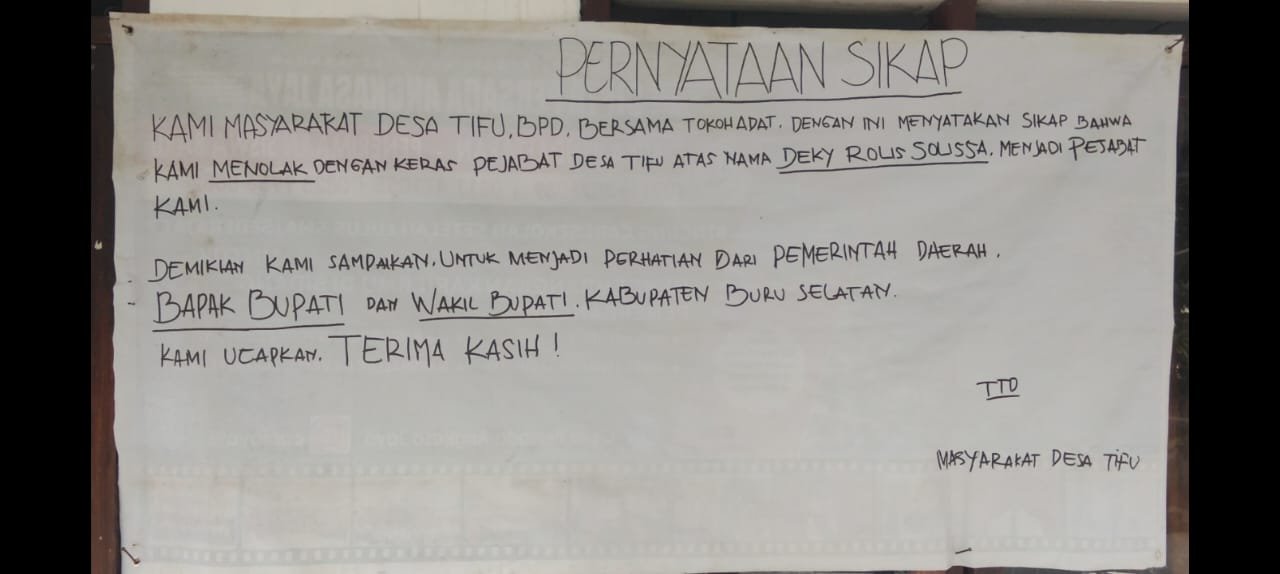 PERNYATAAN SIKAP
KAMI MASYARAKAT DESA TIFU, BPD, BERSAMA TOKOHADAT. DENGAN INI MENYATAKAN SIKAP BAHWA
KAMI MENOLAK DENGAN KERAS PEJABAT DESA TIFU ATAS NAMA DEKY ROLIS SOLISSA. MENJADI PEJABAT
KAMI.
DEMIKIAN KAMI SAMPAIKAN. UNTUK MENJADI PERHATIAN DARI PEMERINTAH DAERAH.
- BAPAK BUPATI DAN WAKIL BUPATI. KABUPATEN BURU SELATAN.
KAMI UCAPKAN. TERIMA KASIH!
TTD
MASYARAKAT DESA TIFU